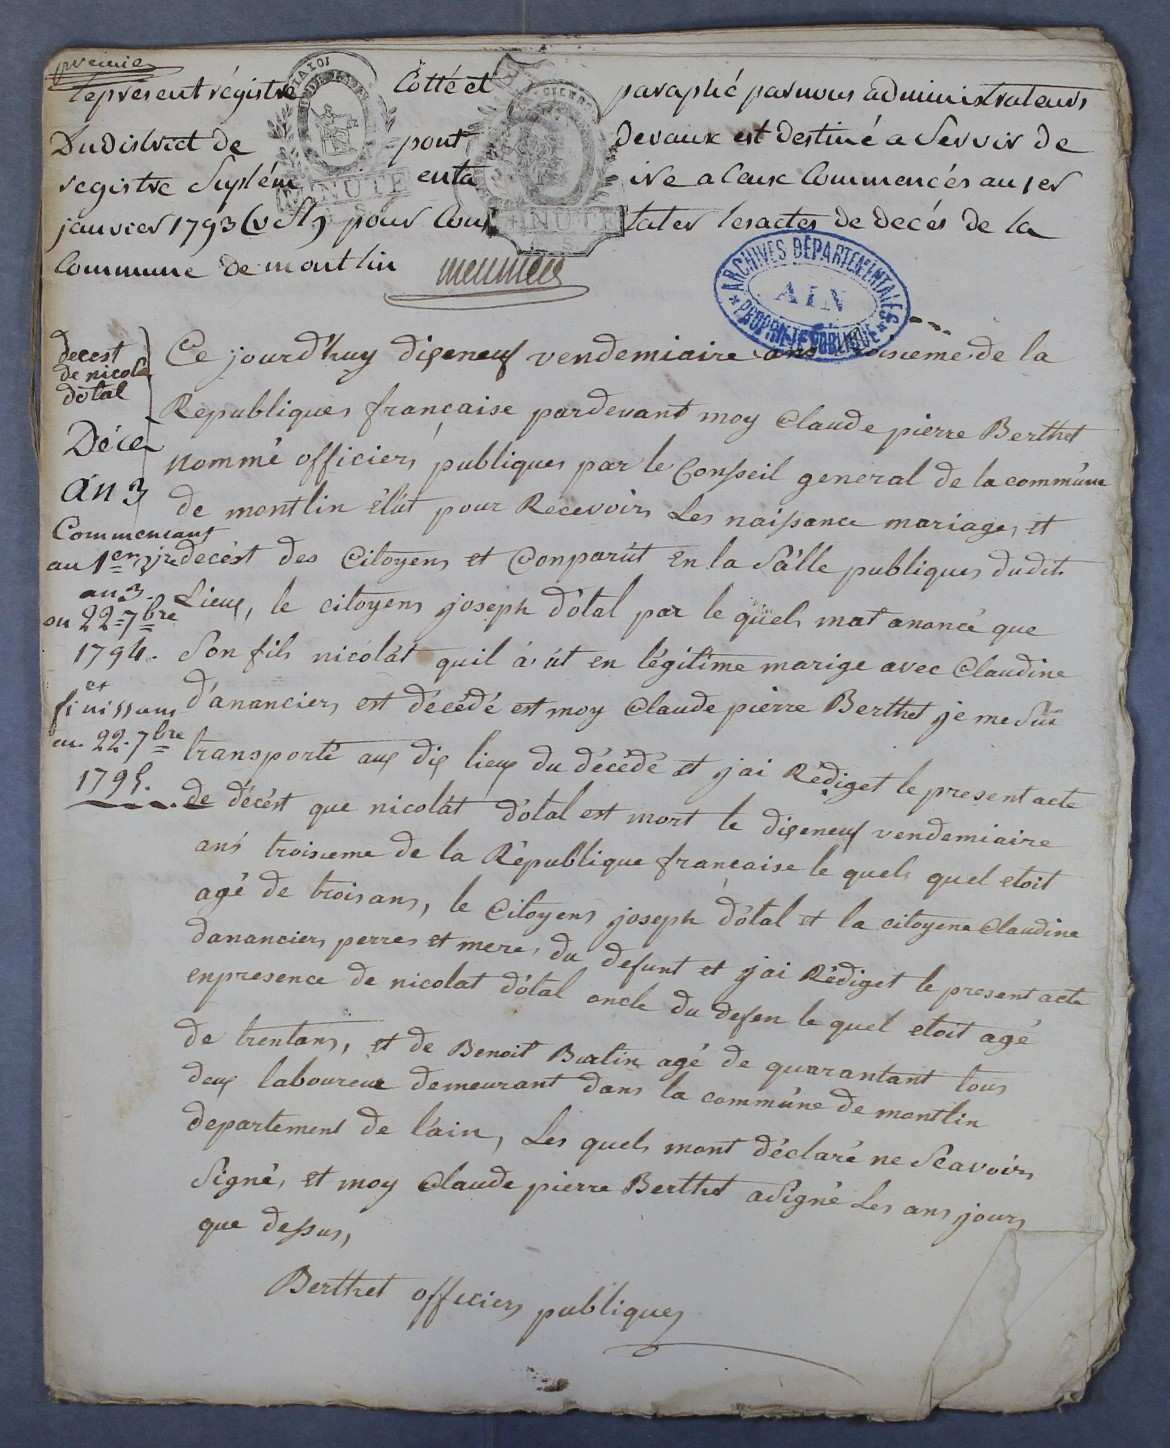 premier
le present régistre Cotté et paraphé par nous administrateurs
Du district de pont devaux est destiné a Servoir de
registre Suplémentaire a Ceux Commencés au 1er
janvier 1793 (v st) pour Constater les actes de decés de la
Commune de montlin meunier
MINUTE
MINUTE
ARCHIVES DÉPARTEMENTALES
AIN
PROPRIÉTÉ PUBLIQUE
decest
de nicolas
dotal
Décès
an 3
Commencant
au 1er vre
an 3.
ou 22 7bre
1794.
et
finissant
au 22 7bre
1795.
Ce jourd'huy dixeneuf vendemiaire ans troisieme de la
Republiques française pardevant moy Claude pierre Berthet
nommé officiers publiques par le Conseil general de la commúne
de montlin élút pour Recevoirs Les naissance mariages et
decést des Citoyens et Conparút en la Sálle publiques dudit
Lieux, le citoyens joseph dótal par le quels mat anoncé que
Son fils nicolát quil á út en légitime marige avec Claudine
d'ananciers est décédé est moy Claude pierre Berthet je me Suis
transporté aux dix lieux du décédé et j'ai Rédiget le present acte
de décést que nicolát dótal est mort le dixeneuf vendemiaire
ans troisieme de la République francaise le quels quel etoit
agé de trois ans, le Citoyens joseph dótal et la citoyene Claudine
dananciers perres et mere, du defunt et j'ai Rédiget le present acte
enpresence de nicolat dótal oncle du defen le quel etoit agé
de trentans, et de Benoit Burtin agé de quarantant tous
deux laboureux demeurant dans la commúne de montlin
departement de l'ain, Les quels mont déclaré ne Scavoirs
Signé, et moy Claude pierre Berthet a Signé Les ans jours
que dessus,
Berthet officiers publiques